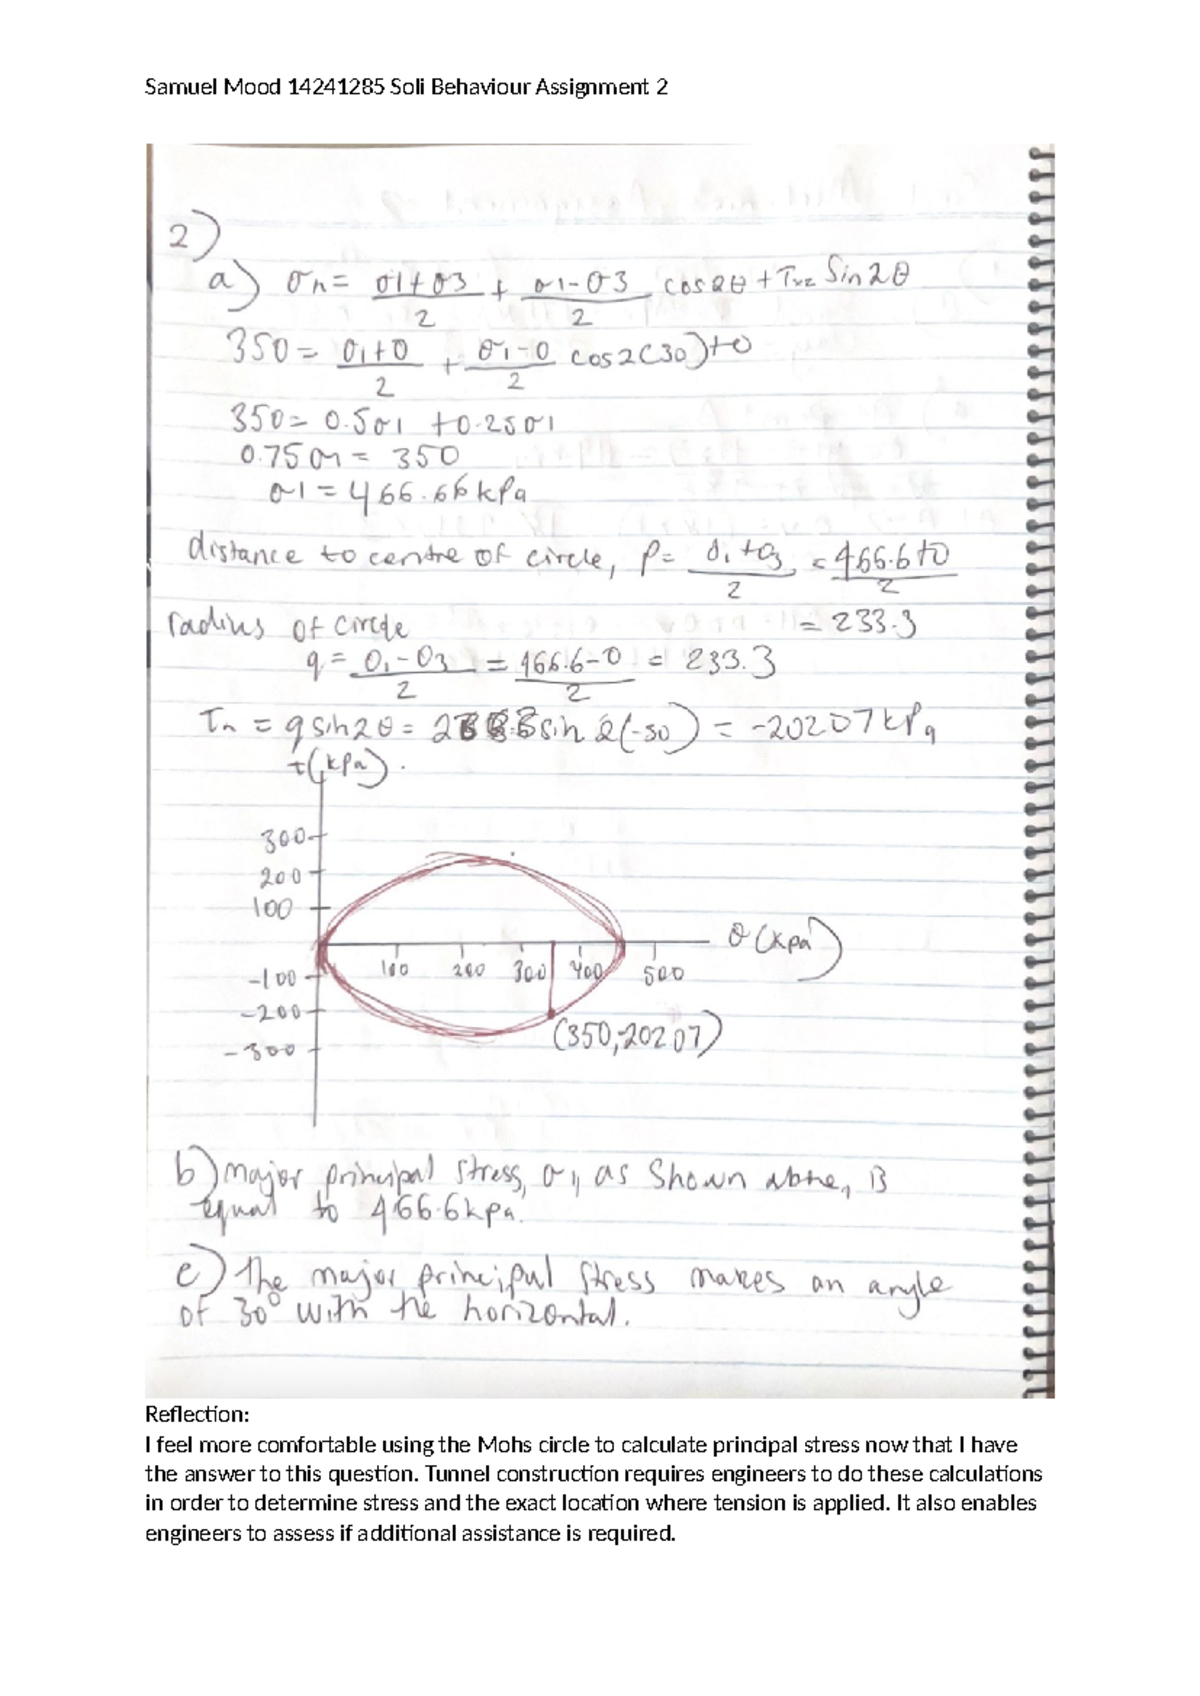 Samuel Mood 14241285 Soli Behaviour Assignment 2
2)
a) σn = σ1+σ3/2 + σ1-σ3/2 cos2θ + Txz Sin2θ
350 = σ1+0/2 + σ1-0/2 cos2(30)+0
350 = 0.5σ1 +0.25σ1
0.75σ1 = 350
σ1 = 466.66kPa
distance to centre of circle, P = σ1+σ3/2 = 466.6+0/2
radius of circle = 233.3
q = σ1-σ3/2 = 466.6-0/2 = 233.3
Tn = q sin2θ = sin 2(-30) = -202.07kPa
τ(kPa).
300
200
100
θ(kpa)
100 200 300 400 500
-100
-200
(350,-202.07)
-300
b) major principal stress, σ1, as shown above, is
equal to 466.6kpa.
c) The major principal stress makes an angle
of 30° with the horizontal.
Reflection:
I feel more comfortable using the Mohs circle to calculate principal stress now that I have
the answer to this question. Tunnel construction requires engineers to do these calculations
in order to determine stress and the exact location where tension is applied. It also enables
engineers to assess if additional assistance is required.